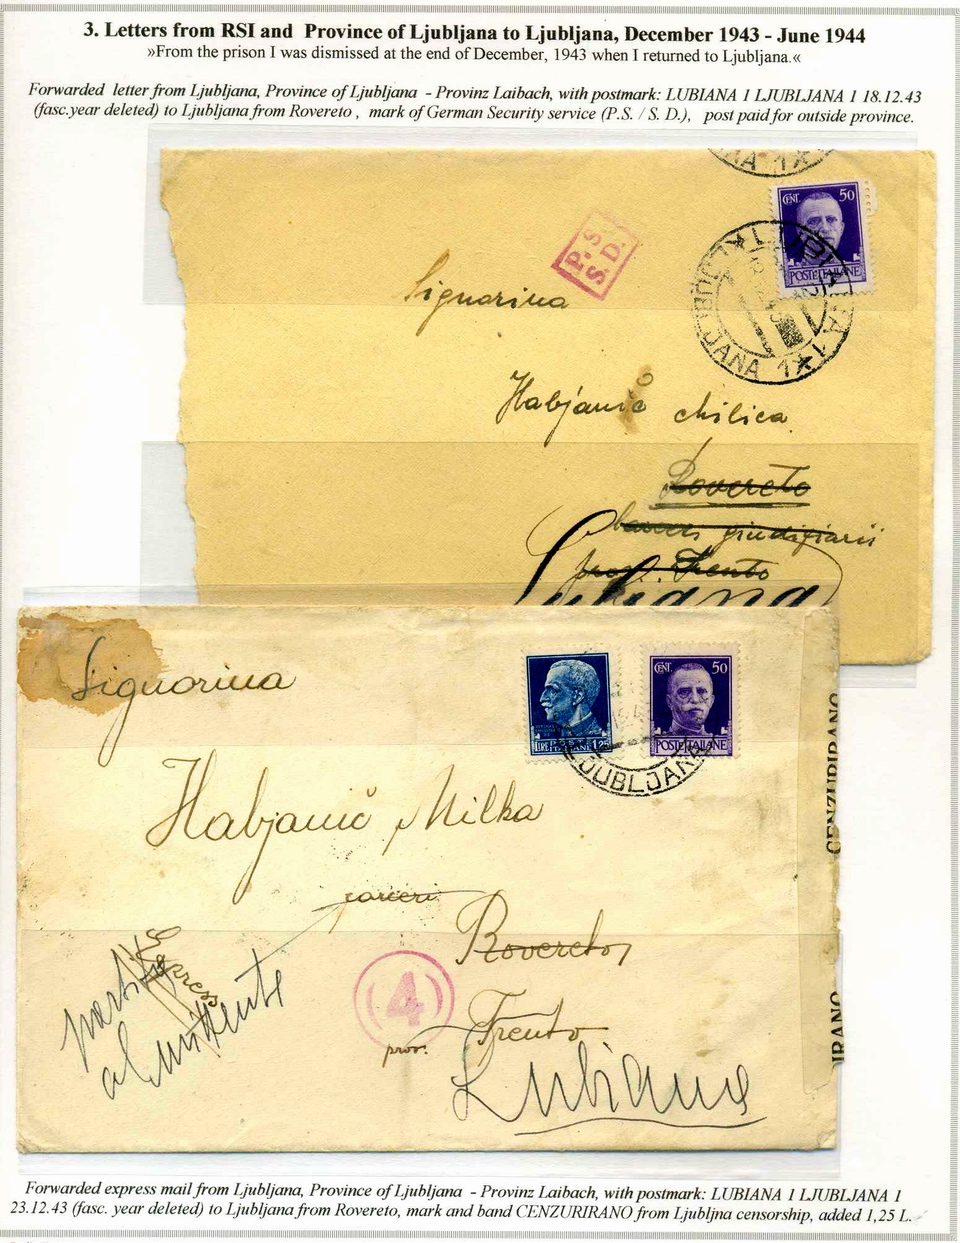 3. Letters from RSI and Province of Ljubljana to Ljubljana, December 1943 - June 1944
»From the prison I was dismissed at the end of December, 1943 when I returned to Ljubljana.«
Forwarded letter from Ljubljana, Province of Ljubljana - Provinz Laibach, with postmark: LUBIANA 1 LJUBLJANA 1 18.12.43
(fasc.year deleted) to Ljubljana from Rovereto , mark of German Security service (P.S. / S. D.), post paid for outside province.
ANA 1
CENT. 50
POSTE ITALIANE
P.S.
S.D.
LJUBLJANA 1
Signorina
Habjanič Milica
Rovereto
carceri giudiziarii
prov. Trento
Lubiana
Signorina
LIRE ITALIANE 1,25
CENT. 50
POSTE ITALIANE
LJUBLJANA
CENZURIRANO
Habjanič Milka
carceri
Rovereto,
Espress
partita
al mittente
4
prov. Trento
Lubiana
IRANO
Forwarded express mail from Ljubljana, Province of Ljubljana - Provinz Laibach, with postmark: LUBIANA 1 LJUBLJANA 1
23.12.43 (fasc. year deleted) to Ljubljana from Rovereto, mark and band CENZURIRANO from Ljubljna censorship, added 1,25 L.